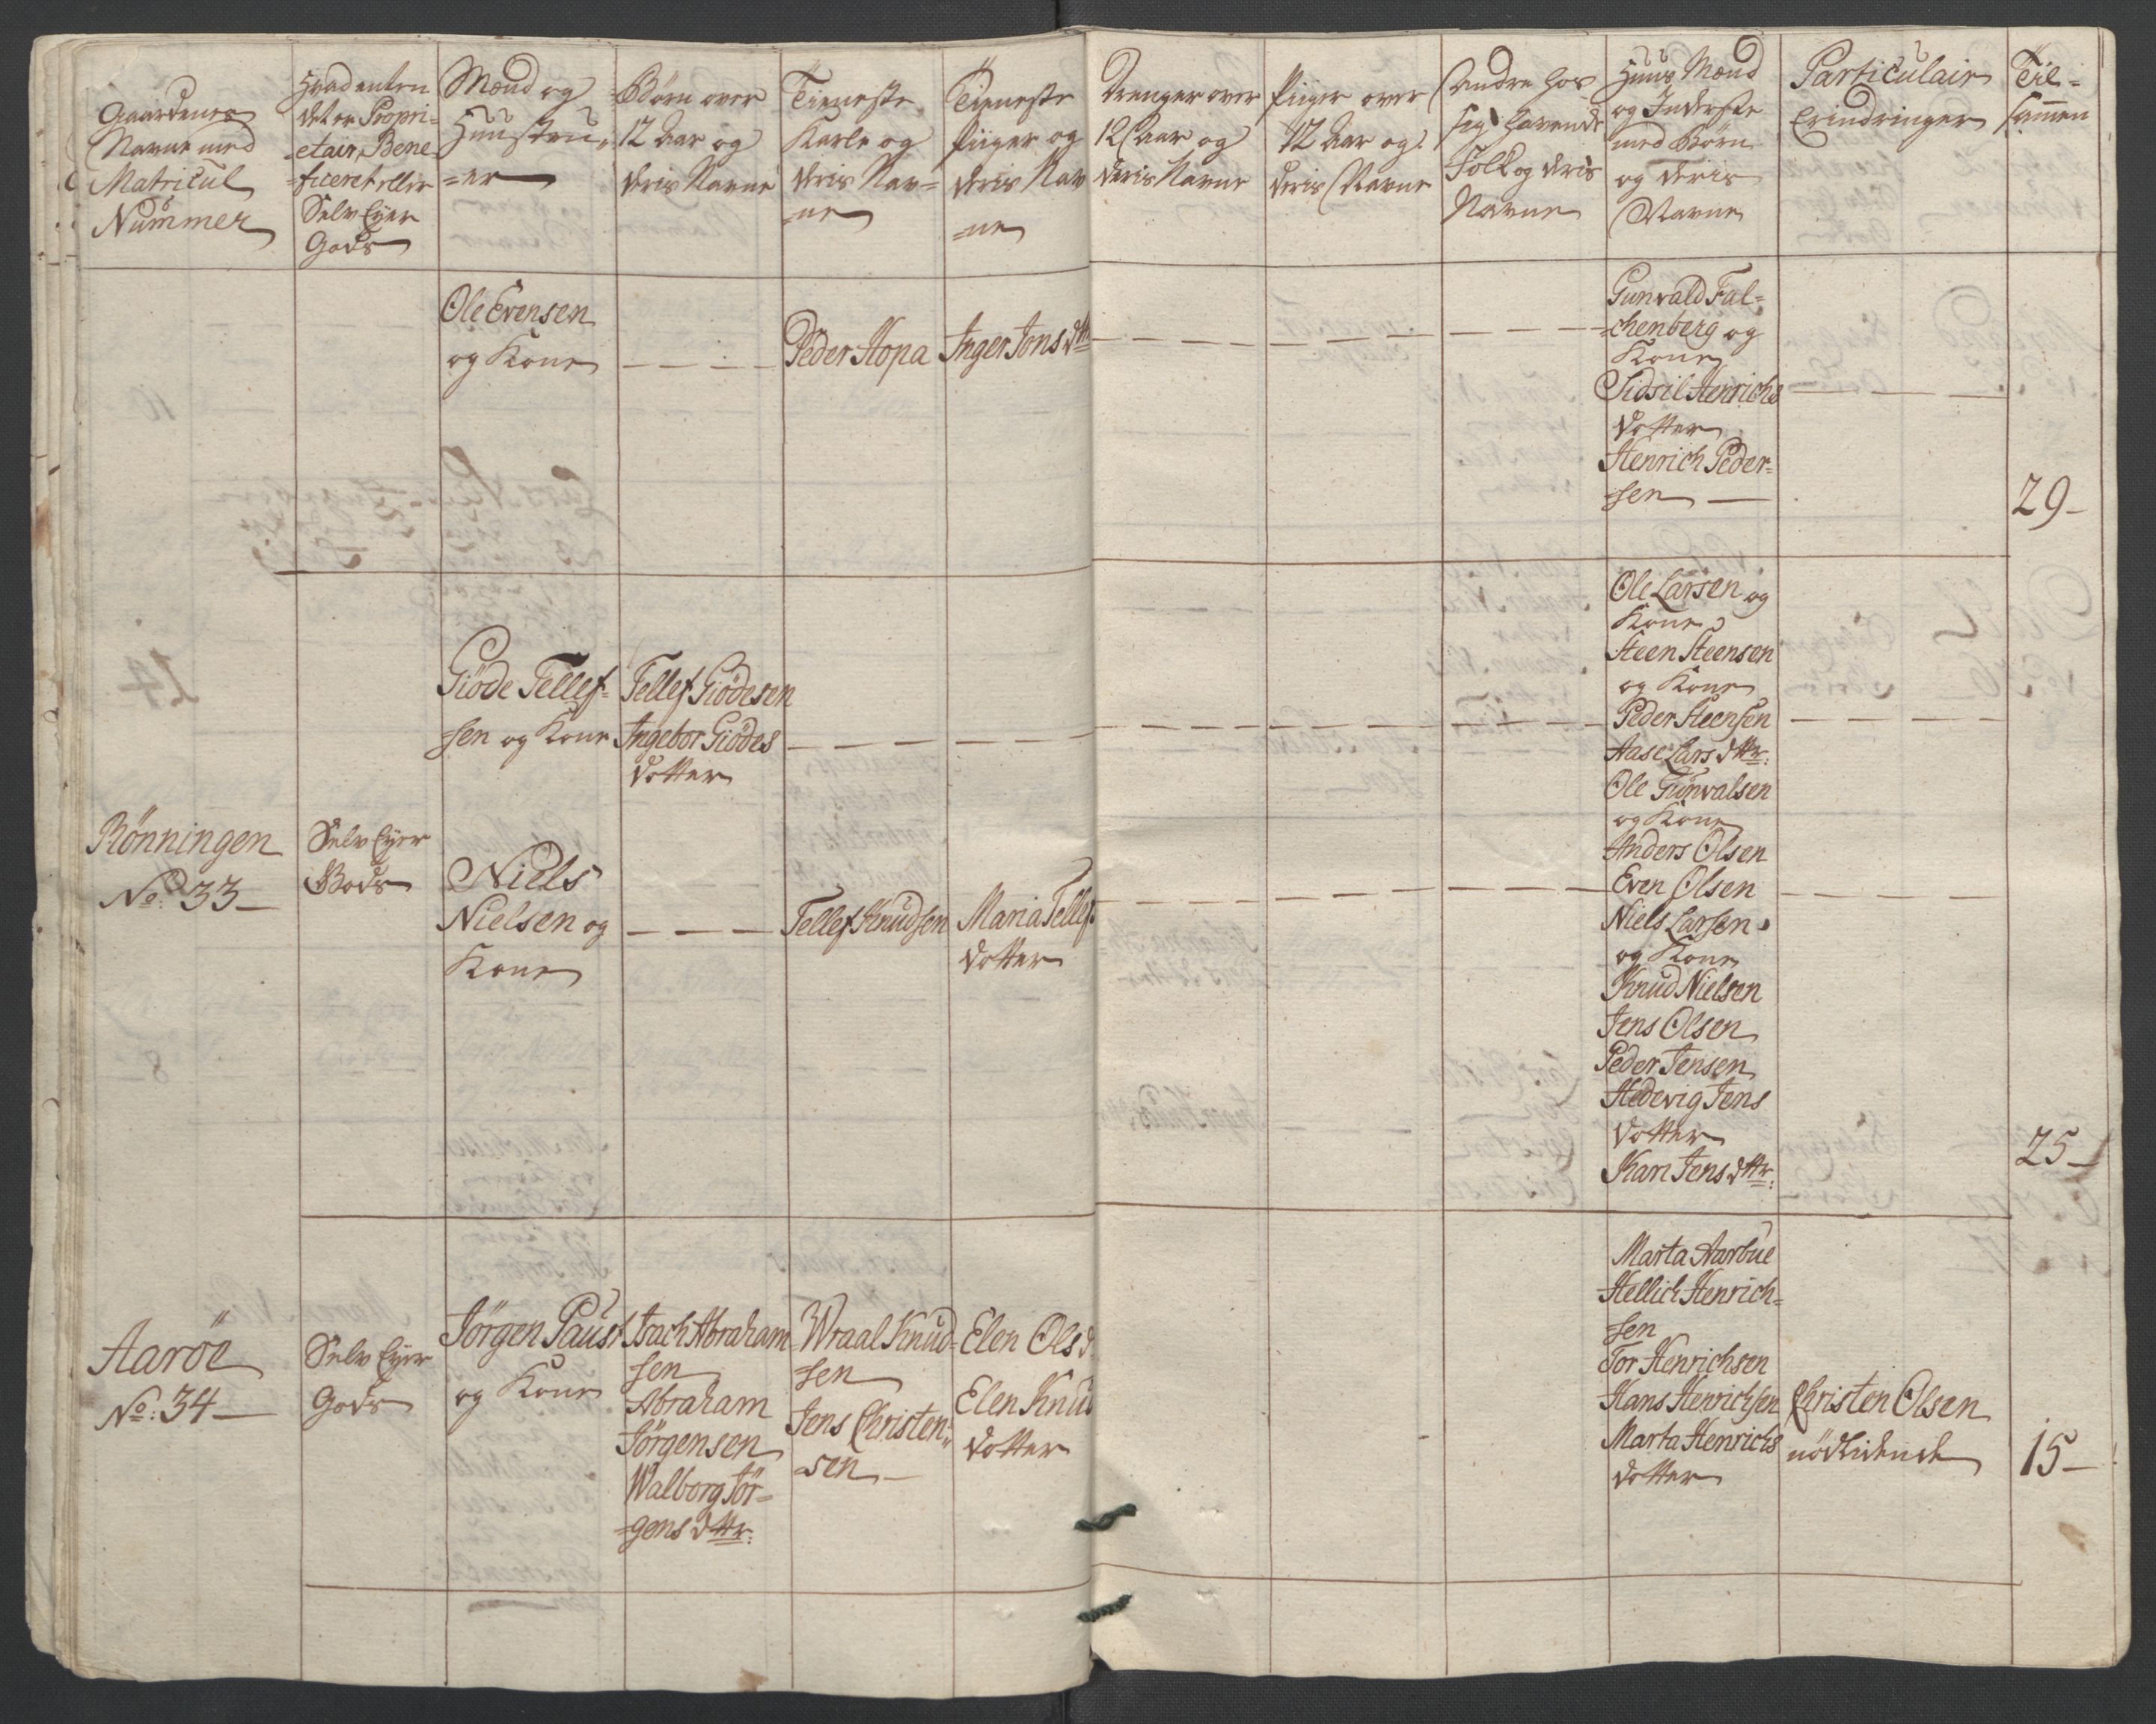 Gaardenes
Navne med
Matricul
Nummer
Hvad enten
det er Propri-
etair, Bene-
ficeret eller
Selv Eyer
Gods
Mænd og
Huustru-
er
Børn over
12 Aar og
deris Navne
Tieneste
Karle og
deris Nav-
ne
Tieneste
Piiger og
deris Nav
ne
Drenger over
12 Aar og
deris Navne
Piiger over
12 Aar og
deris Navne
Andre hos
sig havende
Folk og deris
Navne
Huus Mænd
og Inderste
med Børn
og deris
Navne
Particulair
Erindringer
Til-
sammen
Ole Evensen
og Kone
Peder Hopa
Inger Jons dtt
Gunvald Fal-
chenberg og
Kone
Sidsil Henrichs
dotter
Henrich Peder-
sen
29
Rönningen
No: 33
Selv Eyer
Gods
Giöde Tellef-
sen og Kone
Tellef Giödesen
Ingebor Giödes
dotter
Niels
Nielsen og
Kone
Tellef Knudsen
Maria Tellefs
dotter
Ole Larsen og
Kone
Steen Steensen
og Kone
Peder Steensen
Aase Lars dttr:
Ole Gunvalsen
og Kone
Anders Olsen
Even Olsen
Niels Larsen
og Kone
Knud Nielsen
Jens Olsen
Peder Jensen
Hedevig Jens
dotter
Kari Jens dttr:
25
Aaröe
No: 34
Selv Eyer
Gods
Jörgen Paust
og Kone
Isach Abraham
sen
Abraham
Jörgensen
Walborg Jör-
gens dttr:
Wraal Knud-
sen
Jens Christen-
sen
Elen Ols d
Elen Knud
dotter
Marta Aarbue
Hellich Henrich-
sen
Tor Henrichsen
Hans Henrichsen
Marta Henrichs
dotter
Christen Olsen
nödlidende
15